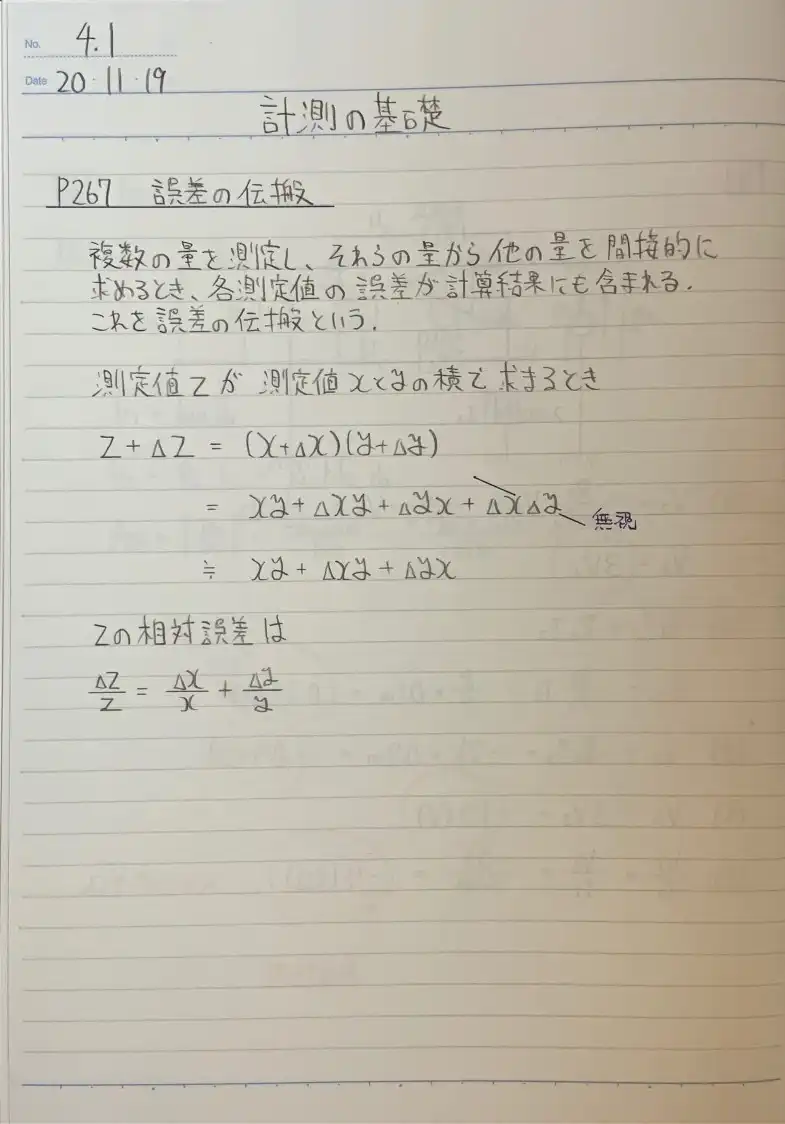 No. 4.1
Date 20・11・19
計測の基礎
P267 誤差の伝搬
複数の量を測定し、それらの量から他の量を間接的に
求めるとき、各測定値の誤差が計算結果にも含まれる.
これを誤差の伝搬という.
測定値Zが測定値xとyの積で求まるとき
Z+ΔZ = (x+Δx)(y+Δy)
= xy+Δxy+Δyx+ΔxΔy 無視
≒ xy+Δxy+Δyx
Zの相対誤差は
ΔZ/Z = Δx/x + Δy/y